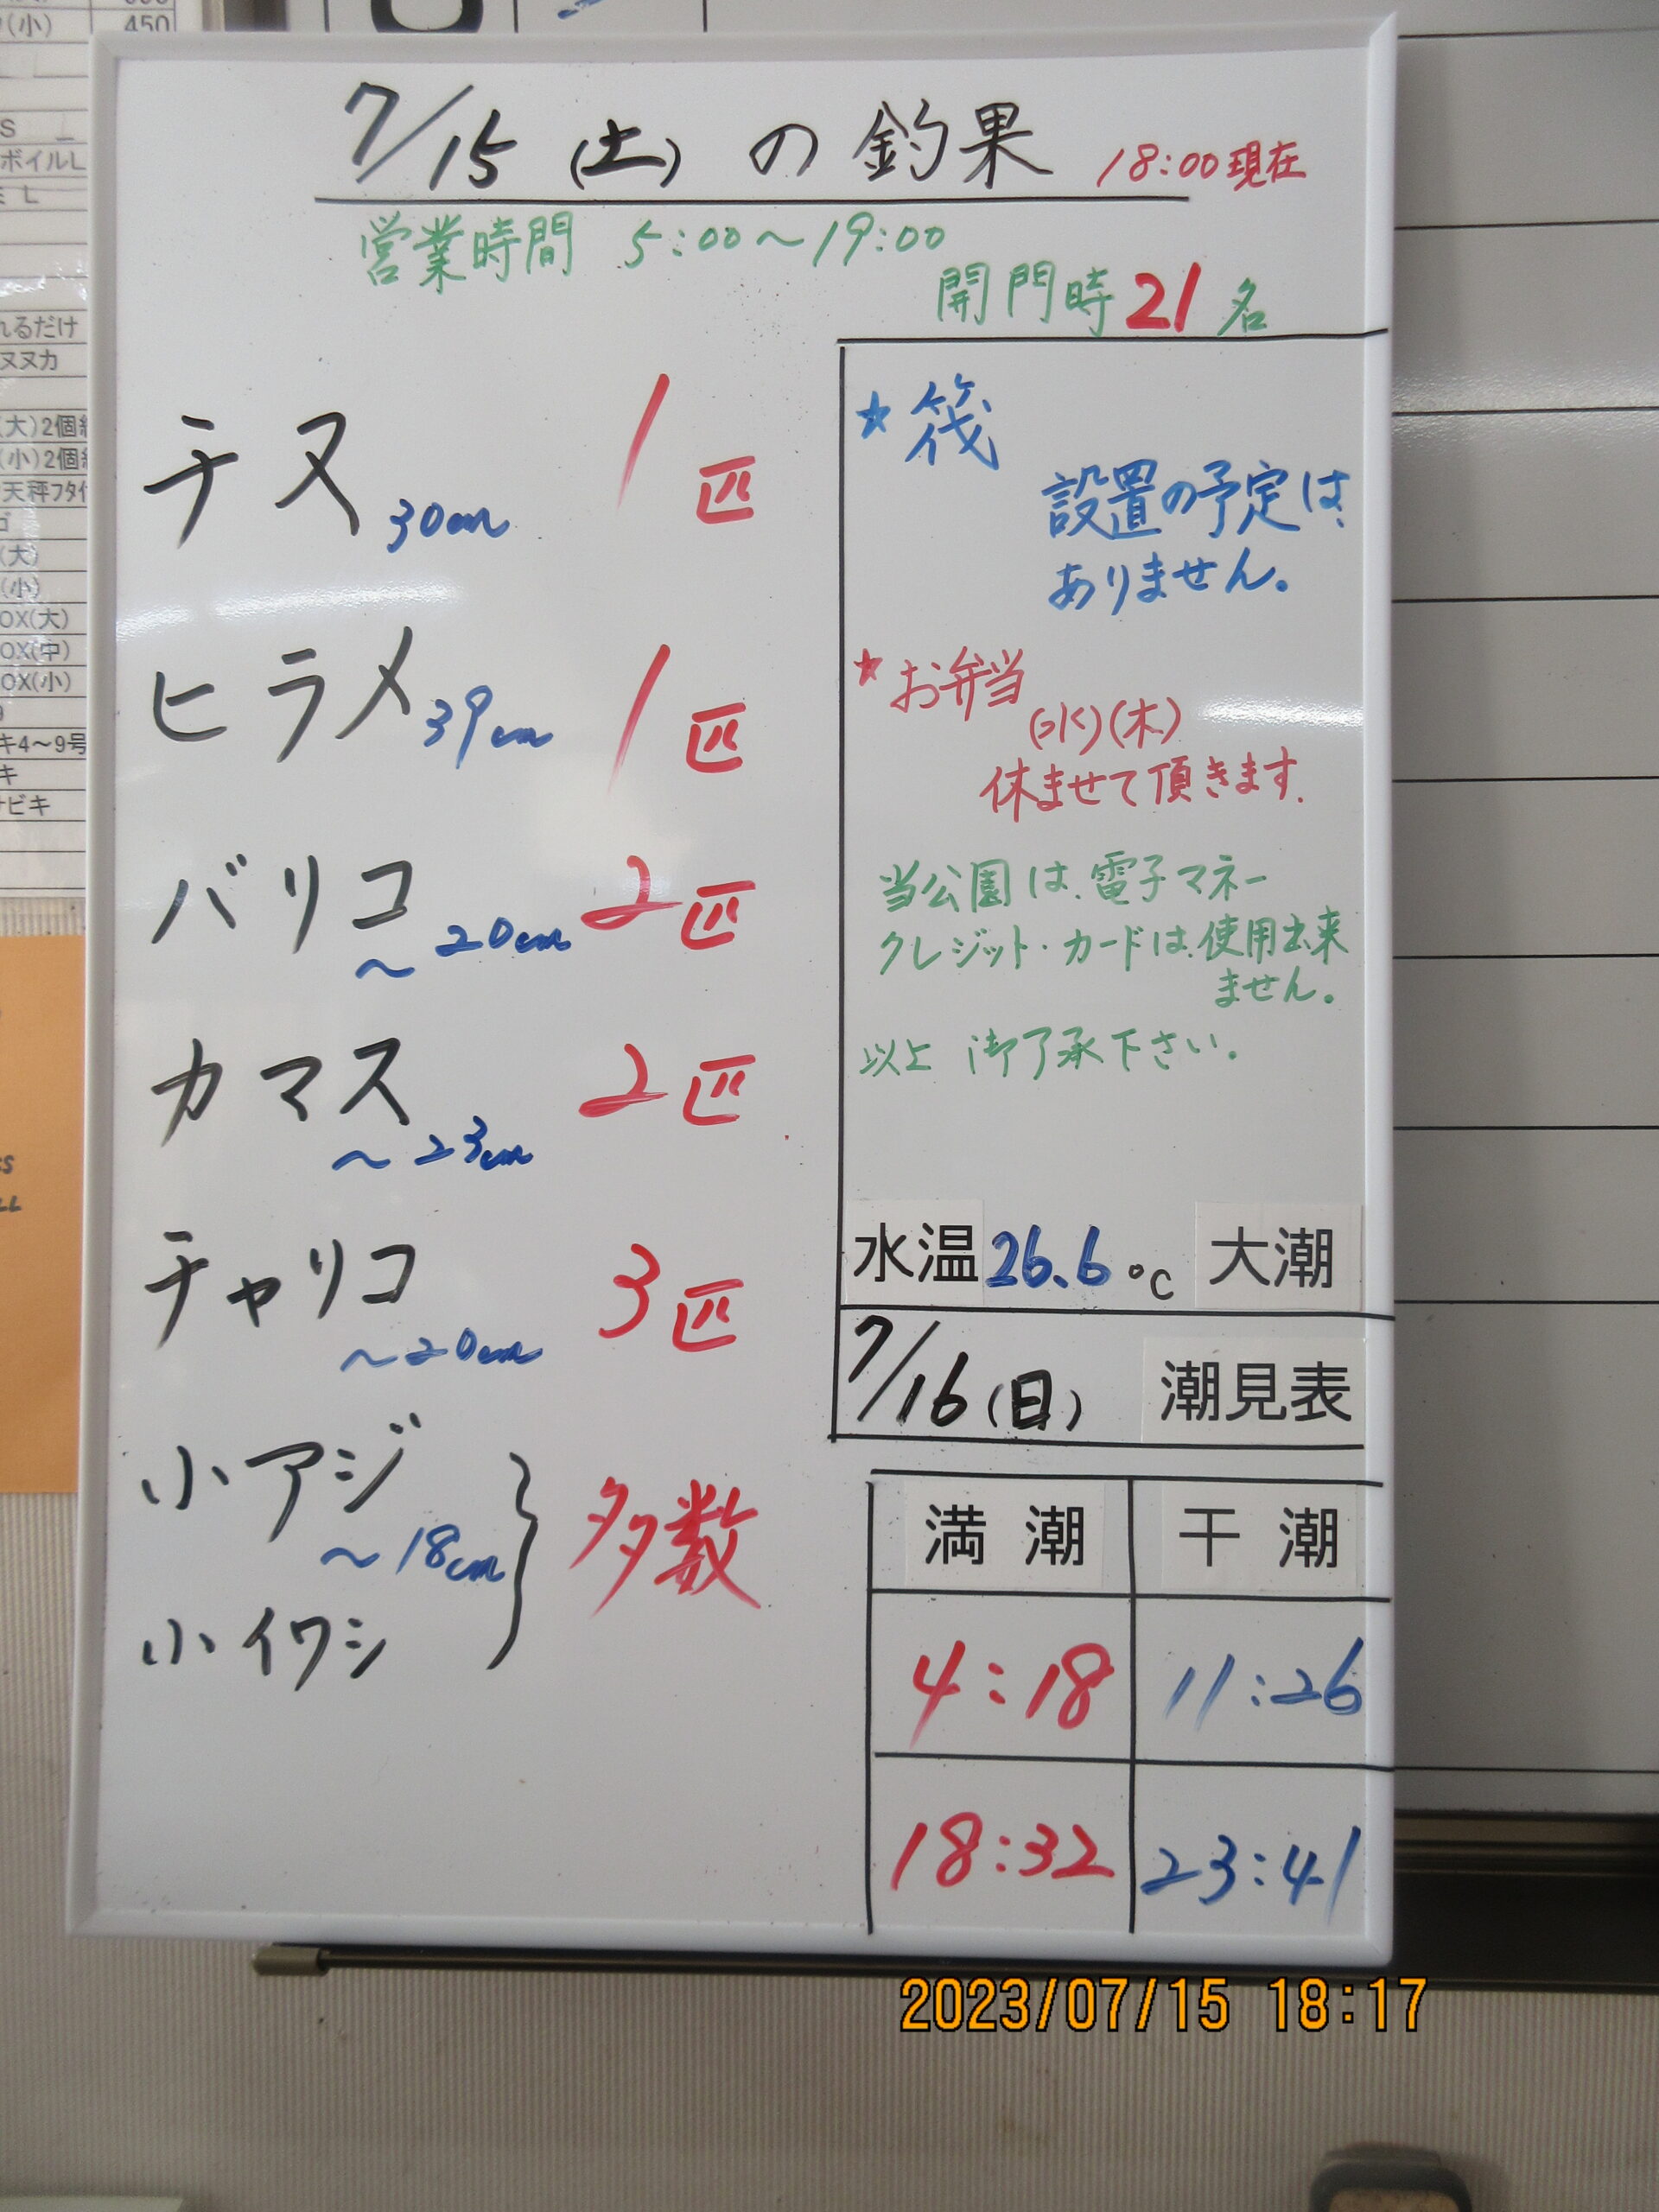 (小) 450
S
ボイルL
L
れるだけ
ヌヌカ
(大)2個
(小)2個
天秤フタ付
(大)
(小)
OX(大)
OX(中)
OX(小)
キ4～9号
キ
サビキ
7/15 (土) の 釣果 18:00現在
営業時間 5:00～19:00
開門時 21 名
チヌ 30cm 1匹
ヒラメ 39cm 1匹
バリコ ～20cm 2匹
カマス ～23cm 2匹
チャリコ ～20cm 3匹
小アジ ～18cm
小イワシ
} 多数
★ 筏
設置の予定は、
ありません。
★お弁当
(水)(木)
休ませて頂きます.
当公園は、電子マネー
クレジット・カードは、使用出来
ません。
以上 御了承下さい。
水温 26.6 °C 大潮
7/16 (日) 潮見表
満 潮 干 潮
4:18 11:26
18:32 23:41
2023/07/15 18:17